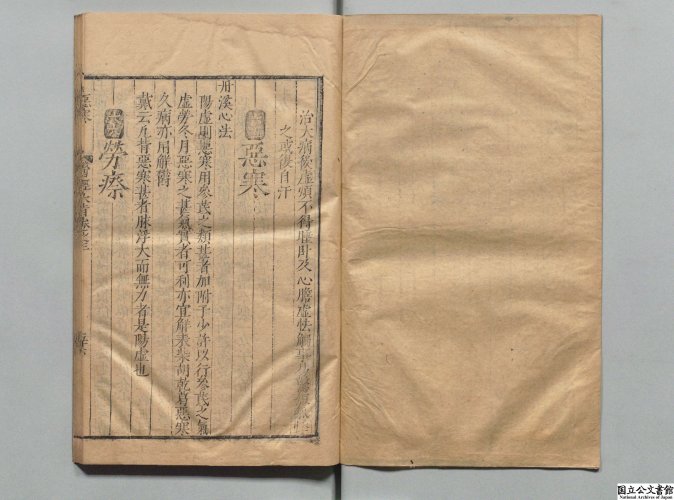 治大病後虛煩不得睡臥及心膽虛怯觸事易驚
之或復自汗
惡寒
丹溪心法
陽虛則惡寒用參芪之類甚者加附子少許以行參芪之氣
虛勞冬月惡寒之甚氣實者可利亦宜解表柴胡乾葛惡寒
久病亦用解鬱
戴云凡背惡寒甚者脉浮大而無力者是陽虛也
勞瘵
惡寒
国立公文書館
National Archives of Japan